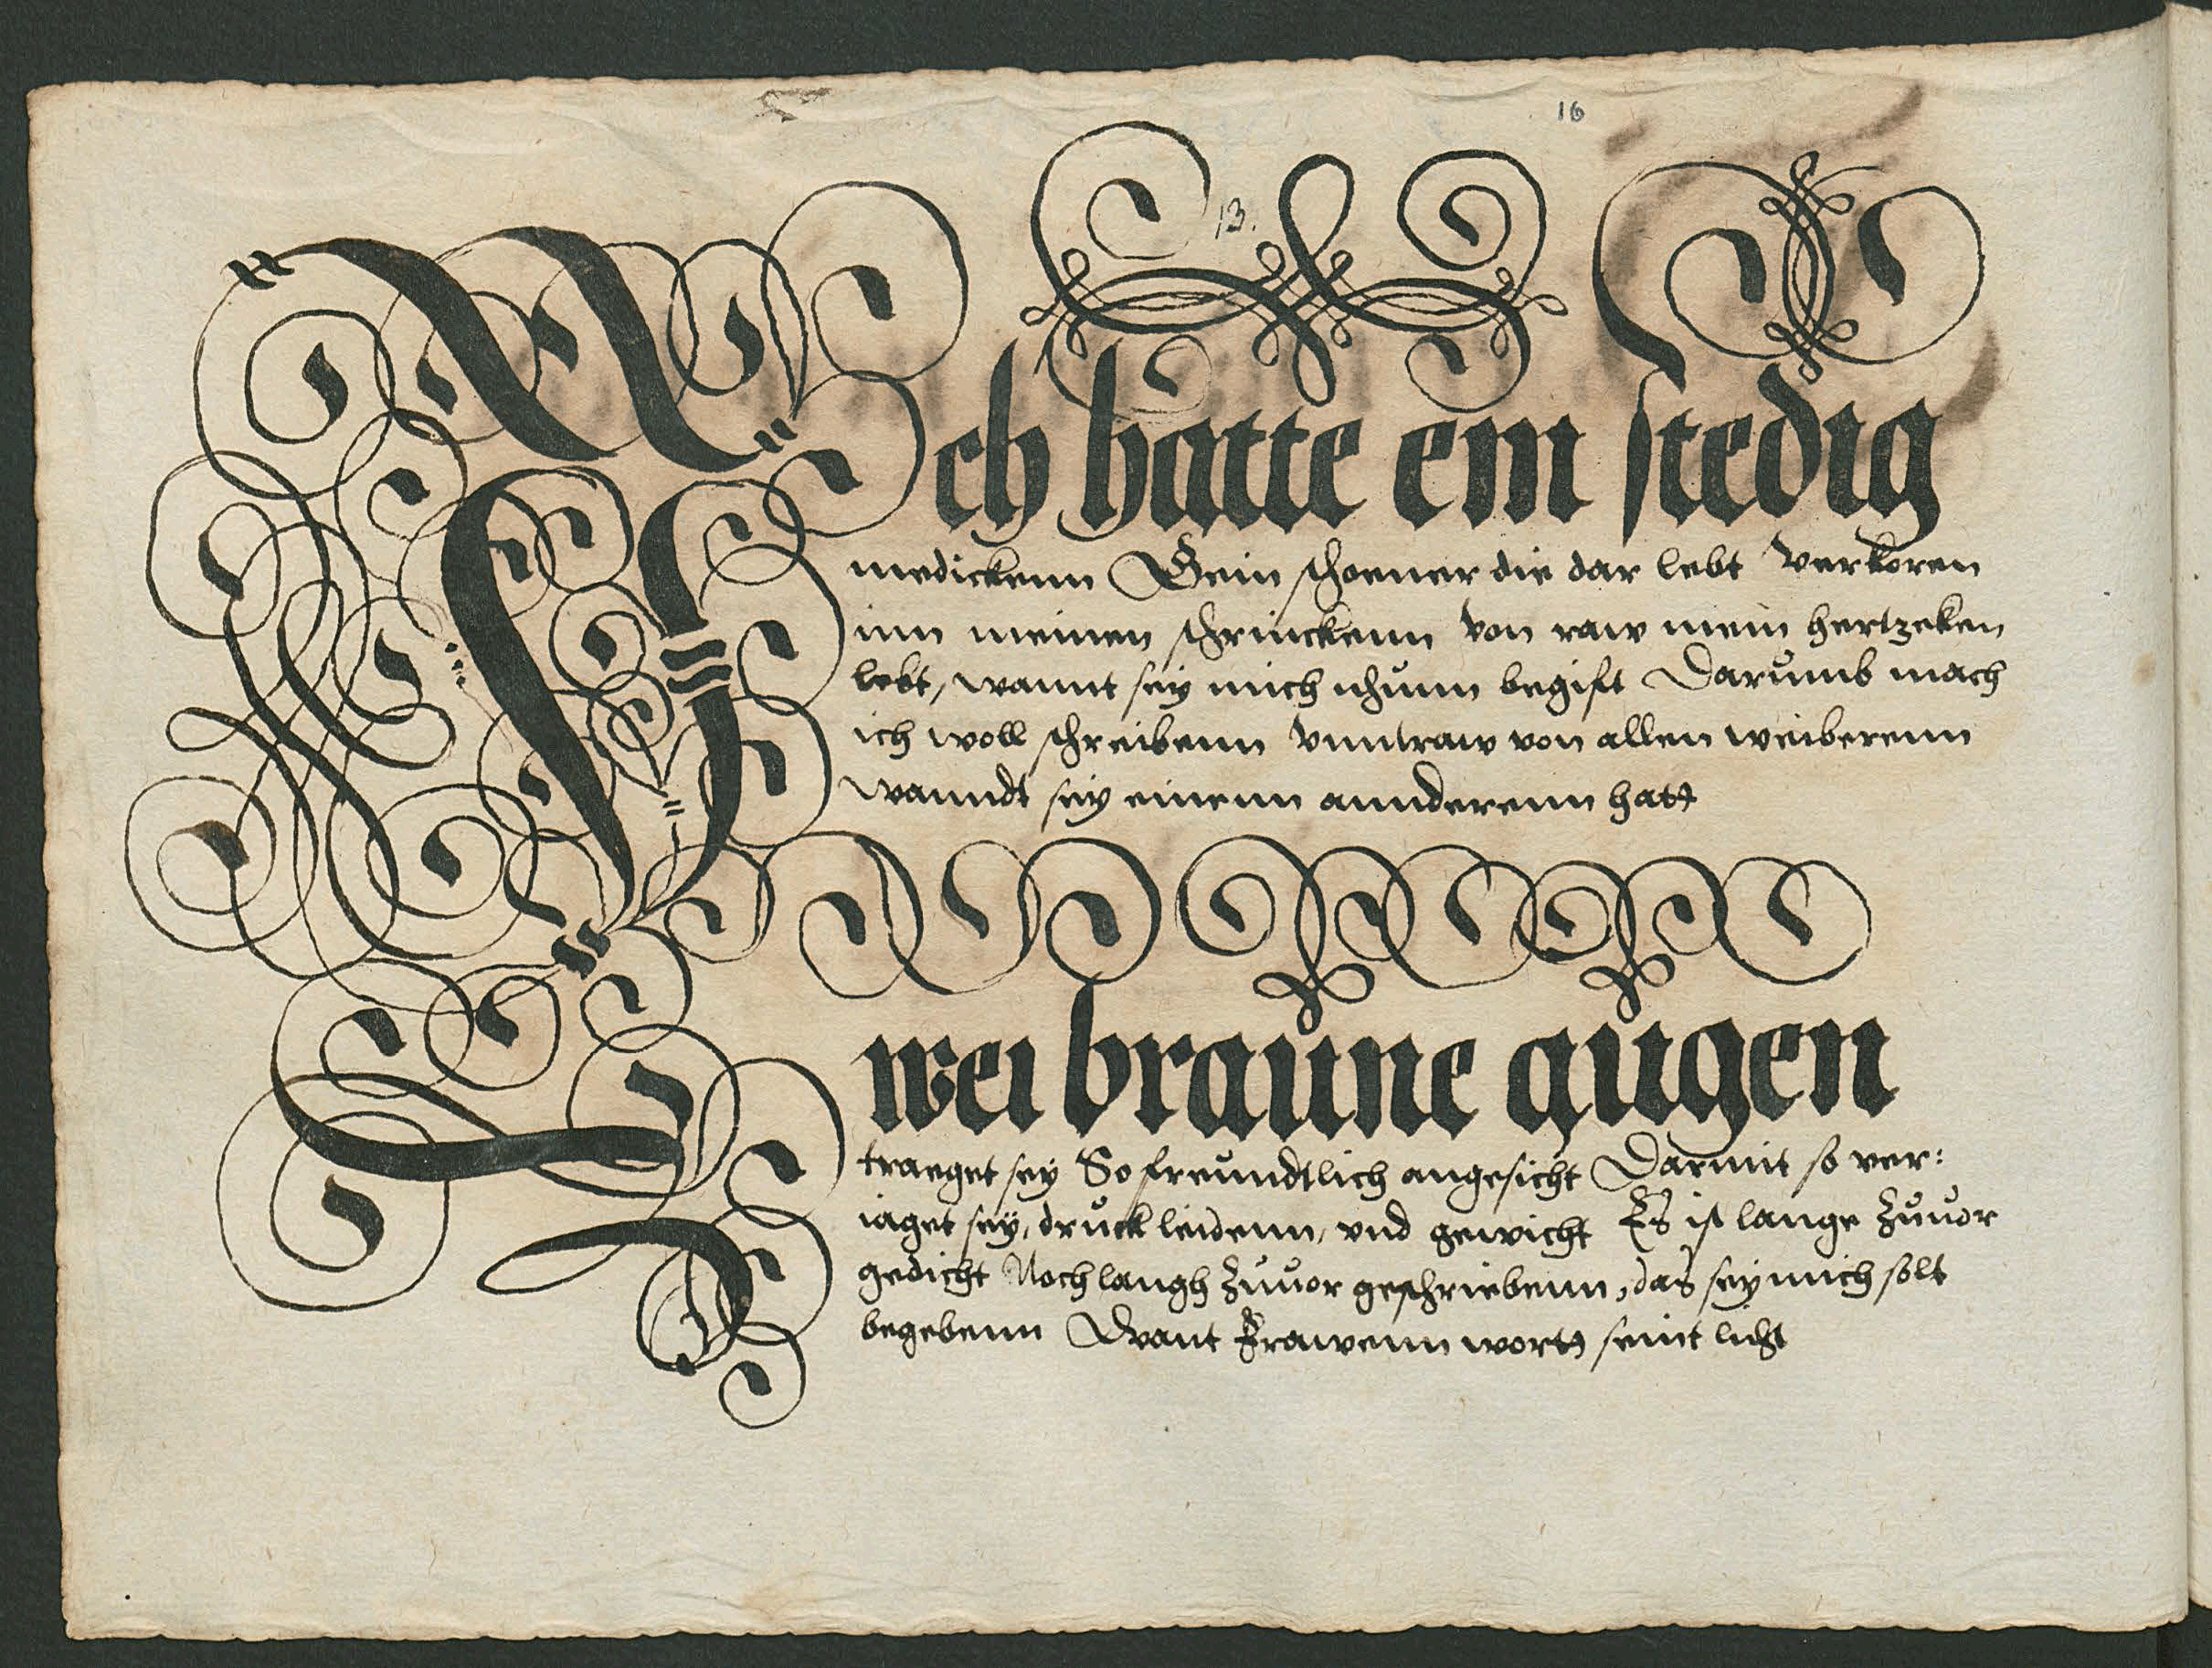 16
13.
Ich hatte ein stedig
medickenn Gein schoener die dar lebt Verkoren
inn meinen schrinckenn von raw mein hertzeken
lebt, wannt sey mich nhunn begift Darumb mach
ich woll schreibenn vnntraw von allen weiberenn
wanndt sey einenn annderenn hatt
Zwei braune augen
traeget sey So freundtlich angesicht Darmit so ver:
iaget sey, druck leidenn, vnd gewicht Es ist lange Zuuor
gedicht Noch langh Zuuor geschriebenn, das sey mich solt
begebenn Want Frawenn wortt seint licht